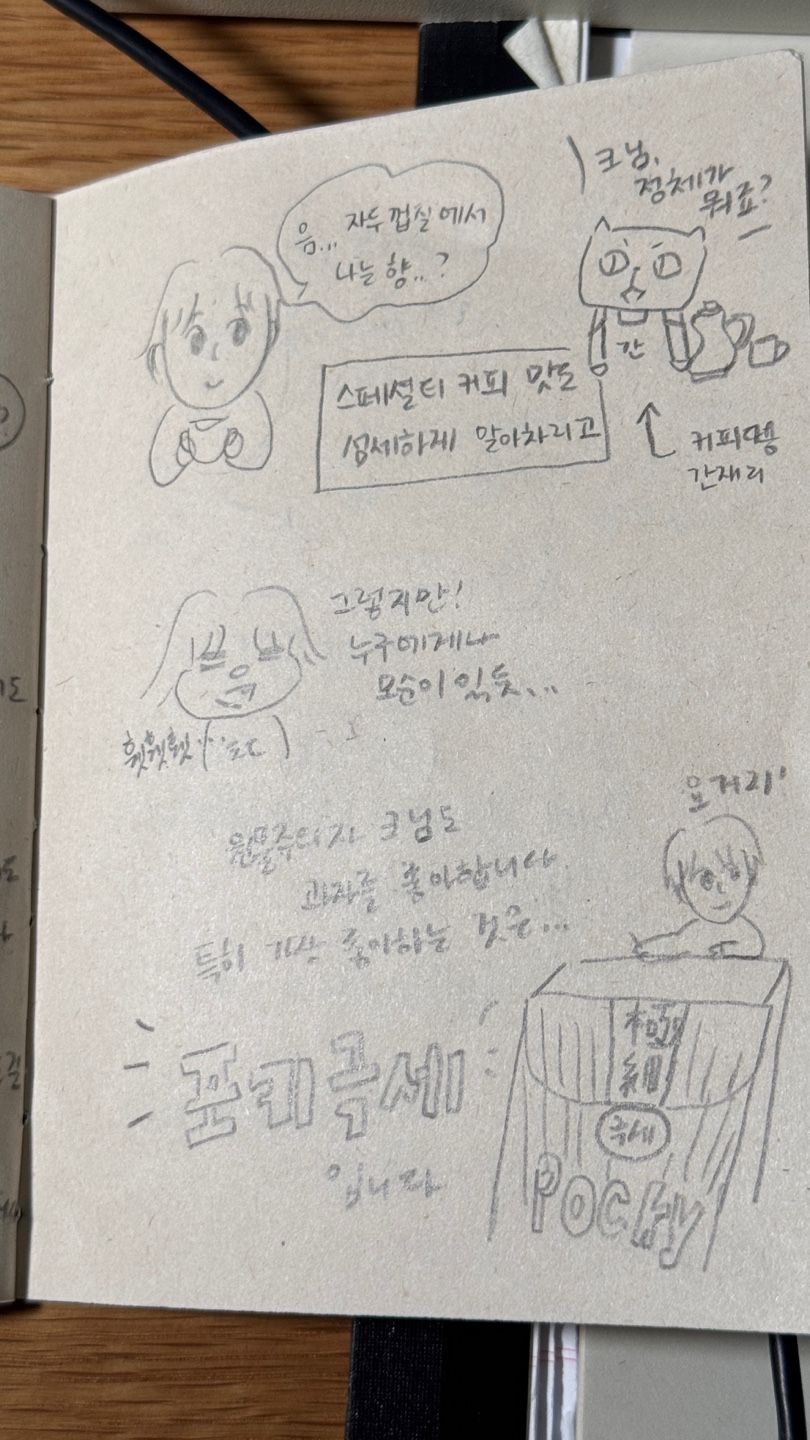 크님,
정체가
뭐죠?
음... 자두껍질에서
나는 향..?
간
스페셜티 커피 맛도
섬세하게 알아차리고
커피맨용
간재리
그렇지만!
누구에게나
모순이 있듯...
휏휏휏
원물주의자 크님도
과자를 좋아합니다
특히 가장 좋아하는 것은...
요거라!
포키극세
입니다
極
細
극세
POCKY